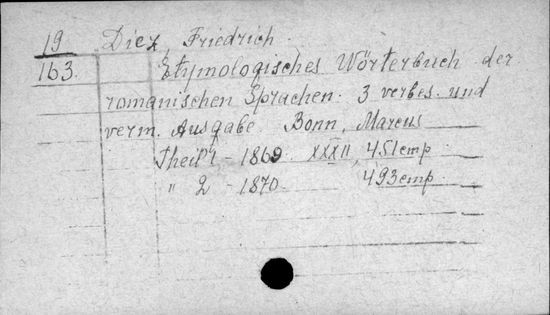 19 Diez, Friedrich.
163. Etymologisches Wörterbuch der
romanischen Sprachen. 3 verbes. und
verm. Ausgabe. Bonn, Marcus
Theil 1 - 1869 XXXII, 451 стр
" 2 - 1870. 493 стр.